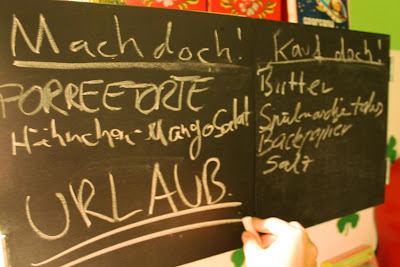 Mach doch!
PORREETORTE
Hähnchen-MangoSalat
URLAUB.
Kauf doch!
Butter
Spülmaschietabs
Backpapier
Salz